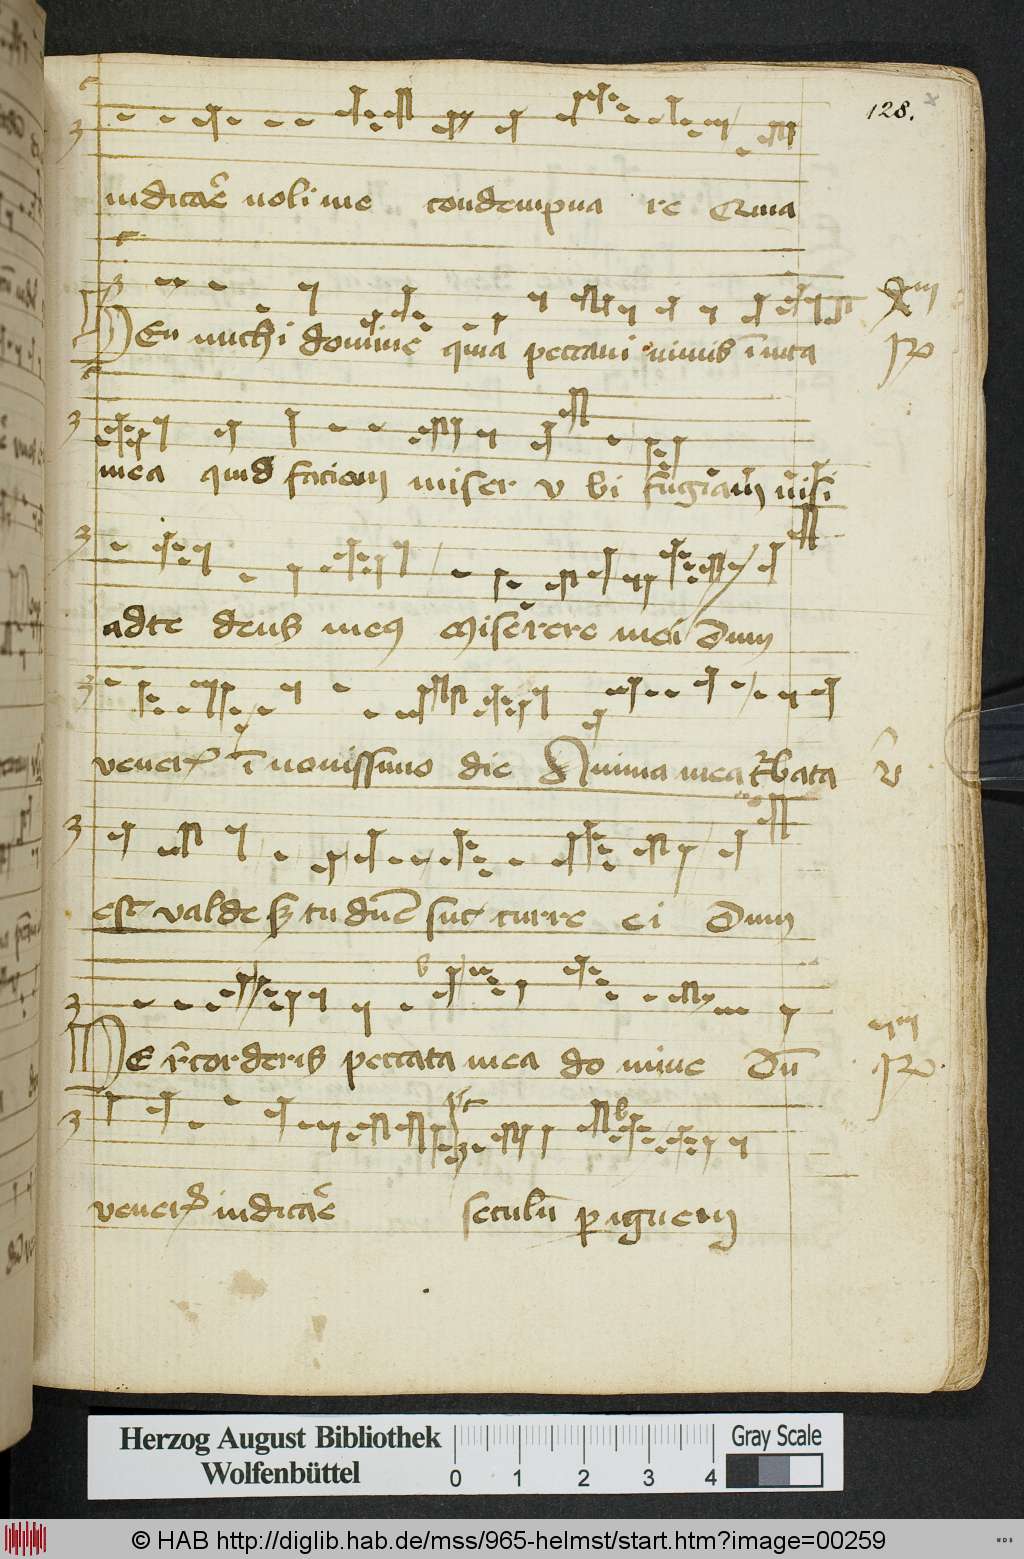 128.
iudicaꝛē noli me condempna re Quia
Heu michi domine quia peccaui nimis ī uita
℟
mea quid faciam miser v bi fugiam nisi
adte deus meus Miserere mei Dum
veneris ī nouissimo die Anima mea t᷑bata
est valde sꝫ tu dñe suc curre ei Dum
Ne recorderis peccata mea do mine Dū
℟
veneris iudicaꝛē seculū p ignem
Herzog August Bibliothek
Wolfenbüttel
0 1 2 3 4
Gray Scale
© HAB http://diglib.hab.de/mss/965-helmst/start.htm?image=00259